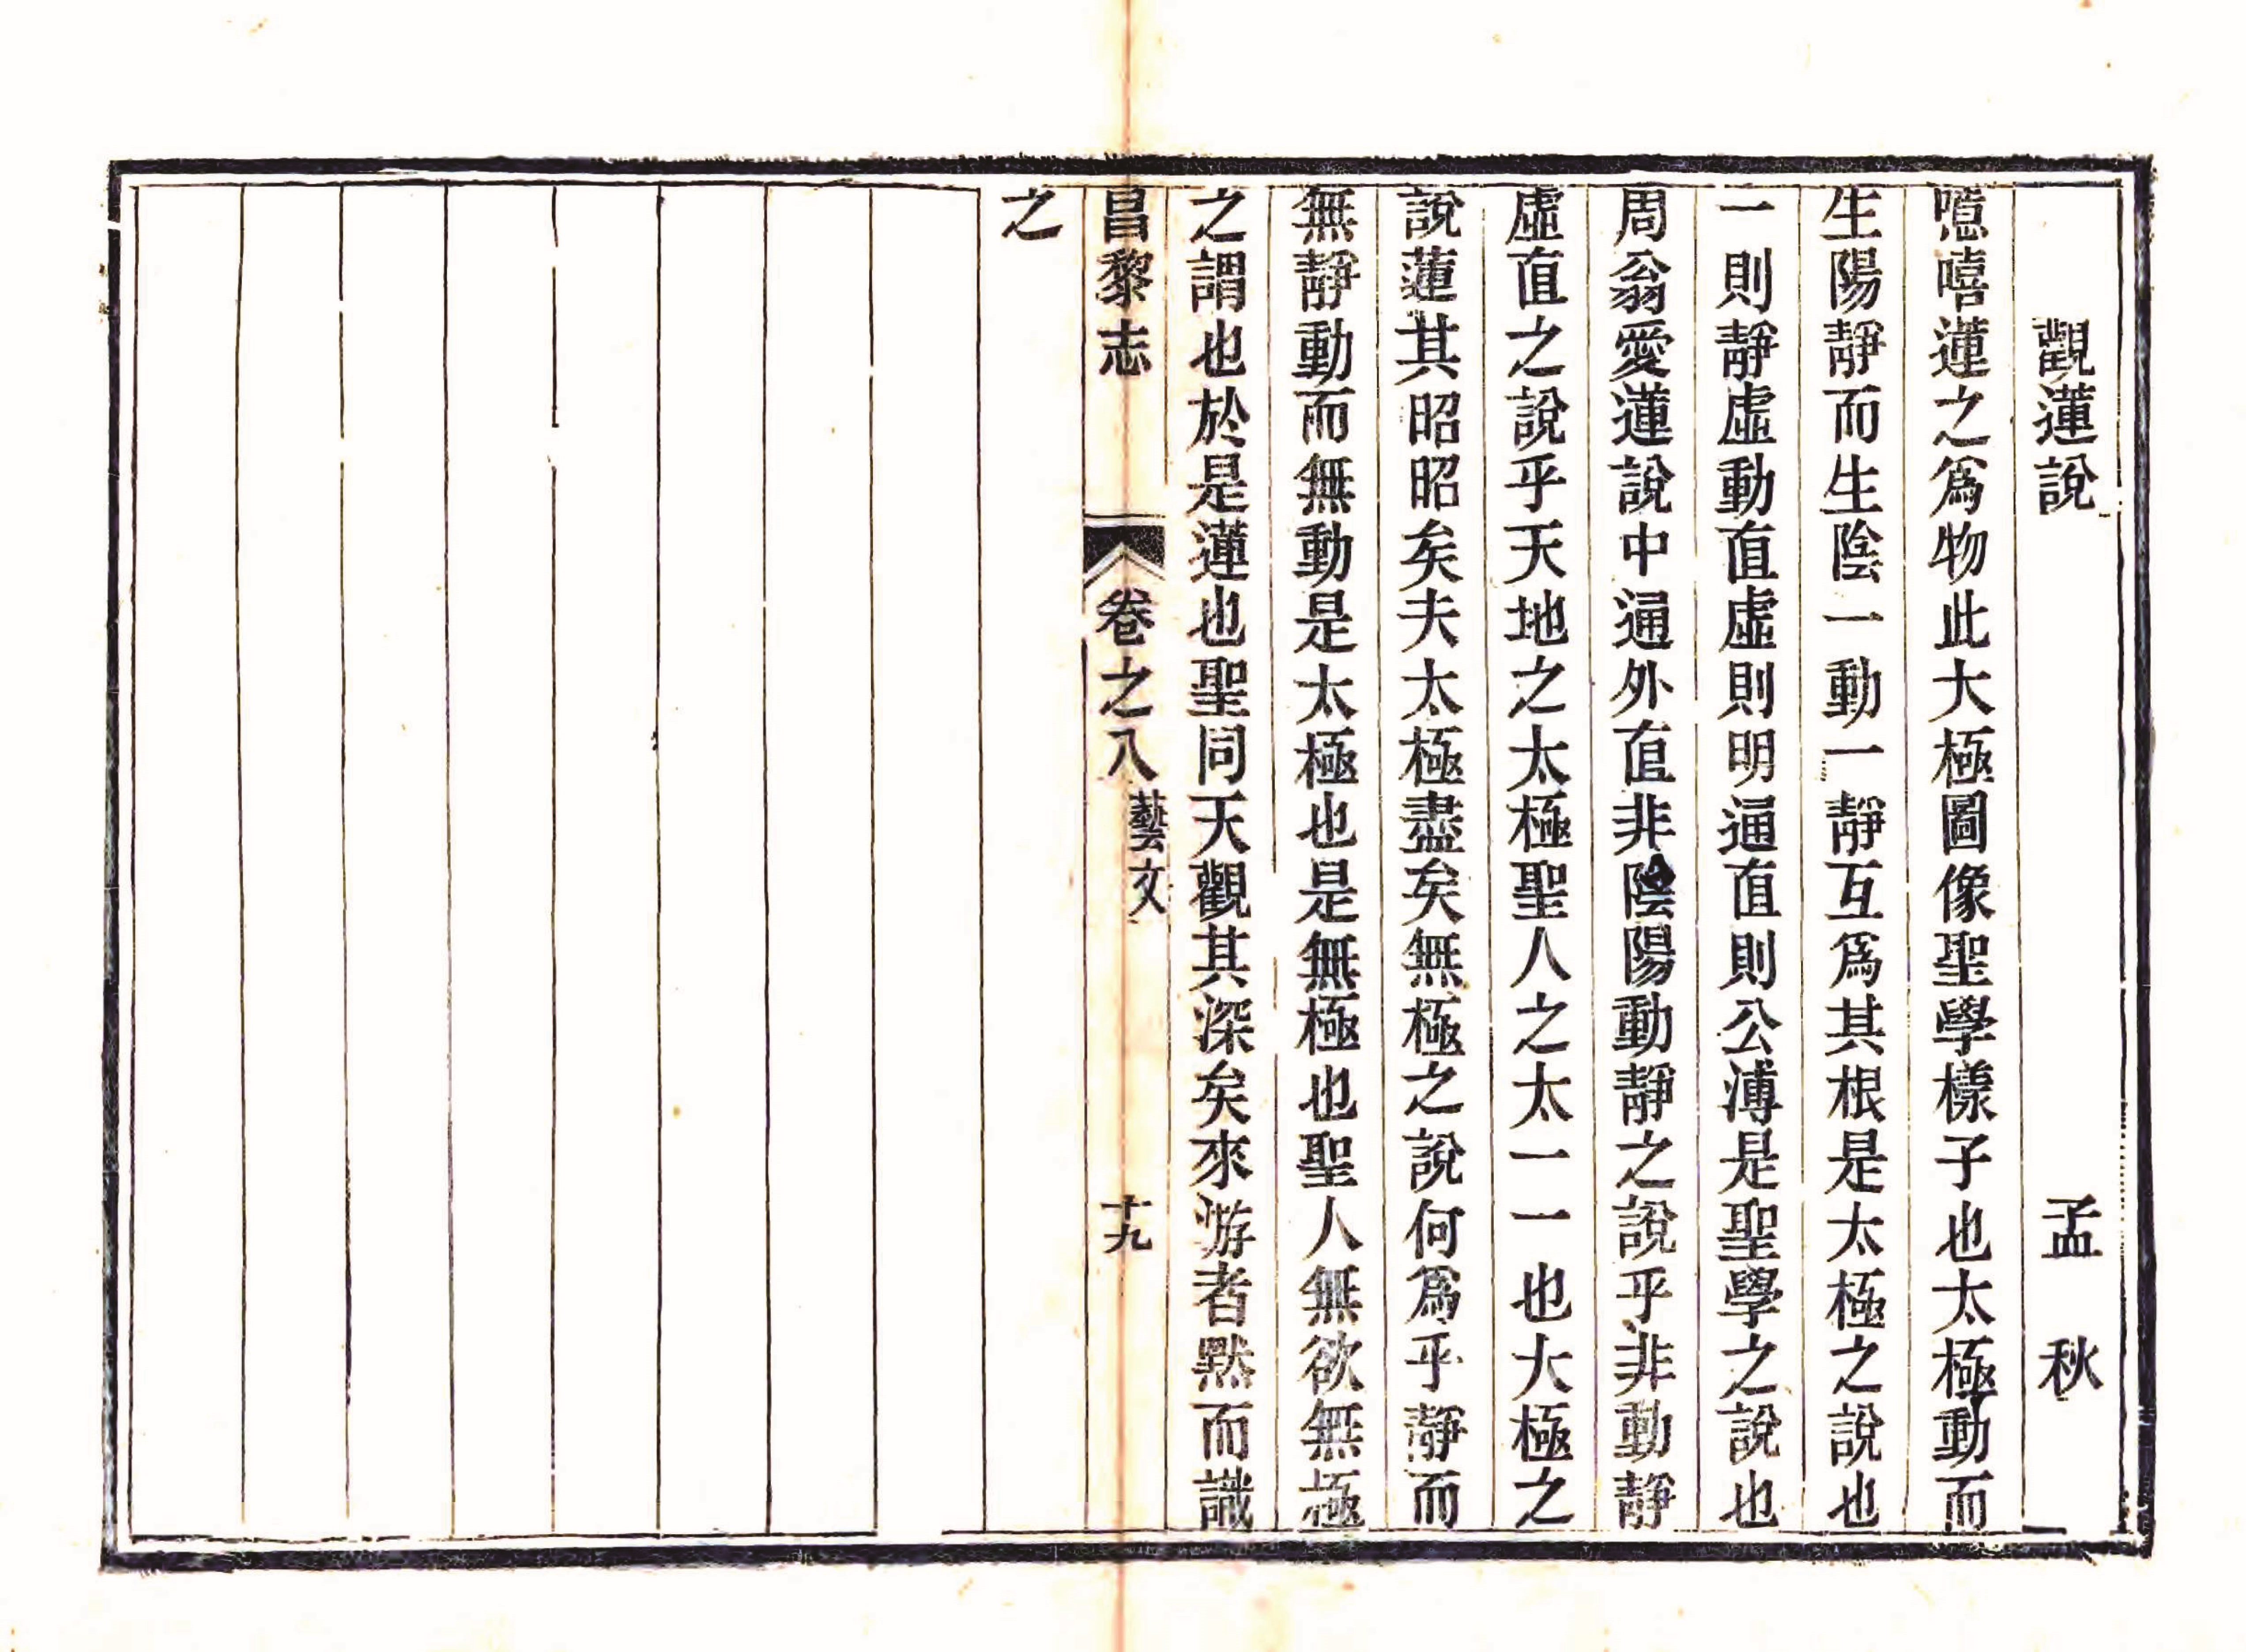 觀蓮說　孟秋
噫嘻蓮之爲物此大極圖像聖學樣子也太極動而
生陽靜而生陰一動一靜互爲其根是太極之說也
一則靜虛動直虛則明通直則公溥是聖學之說也
周翁愛蓮說中通外直非陰陽動靜之說乎非動靜
虛直之說乎天地之太極聖人之太一一也大極之
說蓮其昭昭矣夫太極盡矣無極之說何爲乎靜而
無靜動而無動是太極也是無極也聖人無欲無極
之謂也於是蓮也聖同天觀其深矣來游者黙而識
昌黎志　卷之八　藝文　十九
之